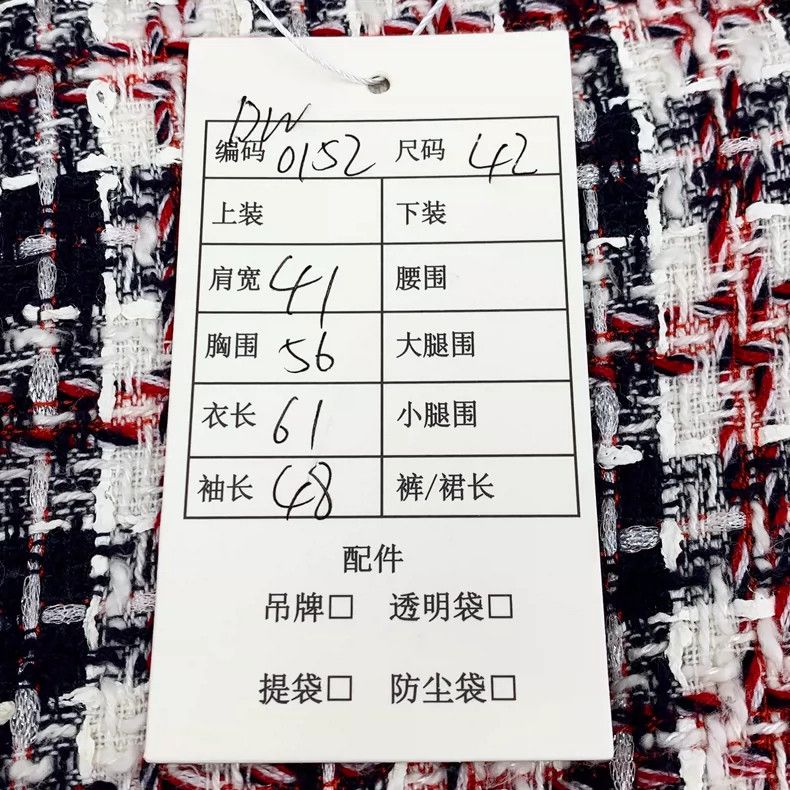 DW
编码 0152 尺码 42
上装 下装
肩宽 41 腰围
胸围 56 大腿围
衣长 61 小腿围
袖长 48 裤/裙长
配件
吊牌□ 透明袋□
提袋□ 防尘袋□